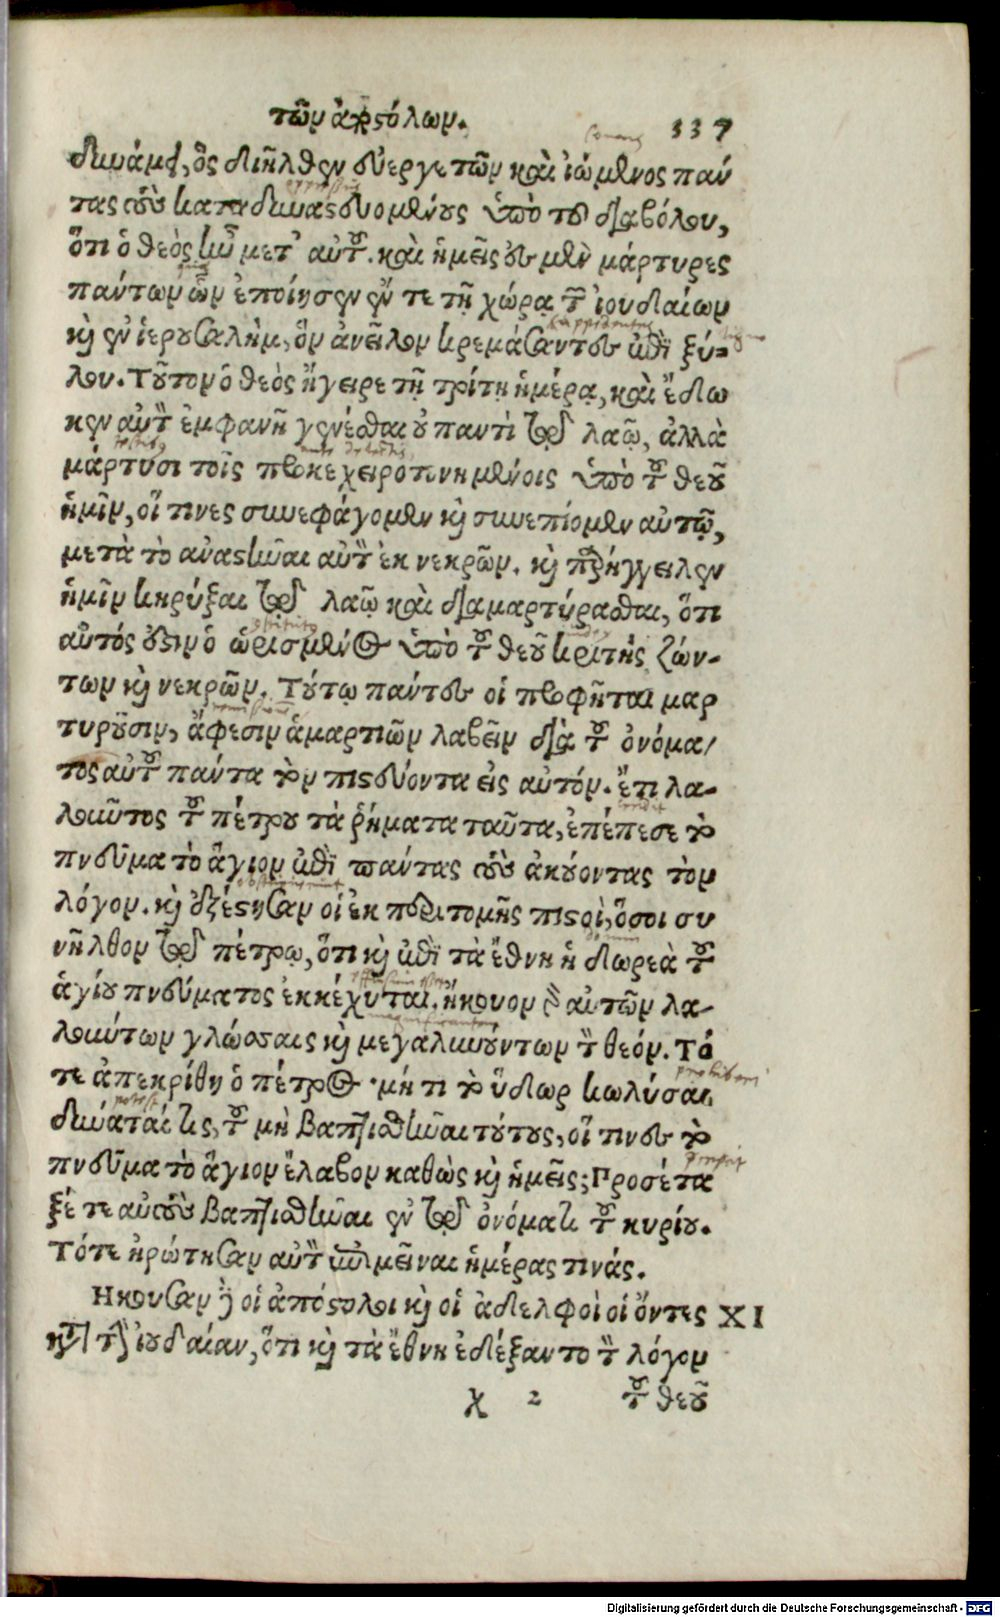 τῶν ἀποστόλων. 337
δυνάμει, ὃς διῆλθεν εὐεργετῶν καὶ ἰώμενος πάν
τας τοὺς καταδυναστευομένους ὑπὸ τοῦ διαβόλου,
ὅτι ὁ θεὸς ἦν μετ' αὐτοῦ. καὶ ἡμεῖς ἐσμὲν μάρτυρες
πάντων ὧν ἐποίησεν ἔν τε τῇ χώρᾳ τῶν ἰουδαίων
καὶ ἐν ἱερουσαλὴμ, ὃν ἀνεῖλον κρεμάσαντες ἐπὶ ξύ-
λου. Τοῦτον ὁ θεὸς ἤγειρε τῇ τρίτῃ ἡμέρᾳ, καὶ ἔδω
κεν αὐτὸν ἐμφανῆ γενέσθαι οὐ παντὶ τῷ λαῷ, ἀλλὰ
μάρτυσι τοῖς προκεχειροτονημένοις ὑπὸ τοῦ θεοῦ
ἡμῖν, οἵ τινες συνεφάγομεν καὶ συνεπίομεν αὐτῷ,
μετὰ τὸ ἀναστῆναι αὐτὸν ἐκ νεκρῶν. καὶ παρήγγειλεν
ἡμῖν κηρύξαι τῷ λαῷ καὶ διαμαρτύρασθαι, ὅτι
αὐτός ἐστιν ὁ ὡρισμένος ὑπὸ τοῦ θεοῦ κριτὴς ζών-
των καὶ νεκρῶν. Τούτῳ πάντες οἱ προφῆται μαρ
τυροῦσιν, ἄφεσιν ἁμαρτιῶν λαβεῖν διὰ τοῦ ὀνόμα/
τος αὐτοῦ πάντα τὸν πιστεύοντα εἰς αὐτόν. ἔτι λα-
λοῦντος τοῦ πέτρου τὰ ῥήματα ταῦτα, ἐπέπεσε τὸ
πνεῦμα τὸ ἅγιον ἐπὶ πάντας τοὺς ἀκούοντας τὸν
λόγον. καὶ ἐξέστησαν οἱ ἐκ περιτομῆς πιστοὶ, ὅσοι συ
νῆλθον τῷ πέτρῳ, ὅτι καὶ ἐπὶ τὰ ἔθνη ἡ δωρεὰ τοῦ
ἁγίου πνεύματος ἐκκέχυται. ἤκουον γὰρ αὐτῶν λα-
λούντων γλώσσαις καὶ μεγαλυνόντων τὸν θεόν. Τό
τε ἀπεκρίθη ὁ πέτρος· μήτι τὸ ὕδωρ κωλῦσαι
δύναταί τις, τοῦ μὴ βαπτισθῆναι τούτους, οἵ τινες τὸ
πνεῦμα τὸ ἅγιον ἔλαβον καθὼς καὶ ἡμεῖς; Προσέτα
ξέ τε αὐτοὺς βαπτισθῆναι ἐν τῷ ὀνόματι τοῦ κυρίου.
Τότε ἠρώτησαν αὐτὸν ἐπιμεῖναι ἡμέρας τινάς.
Ηκουσαν δὲ οἱ ἀπόστολοι καὶ οἱ ἀδελφοὶ οἱ ὄντες XI
κατὰ τὴν ἰουδαίαν, ὅτι καὶ τὰ ἔθνη ἐδέξαντο τὸν λόγον
χ 2 τοῦ θεοῦ
Digitalisierung gefördert durch die Deutsche Forschungsgemeinschaft - DFG